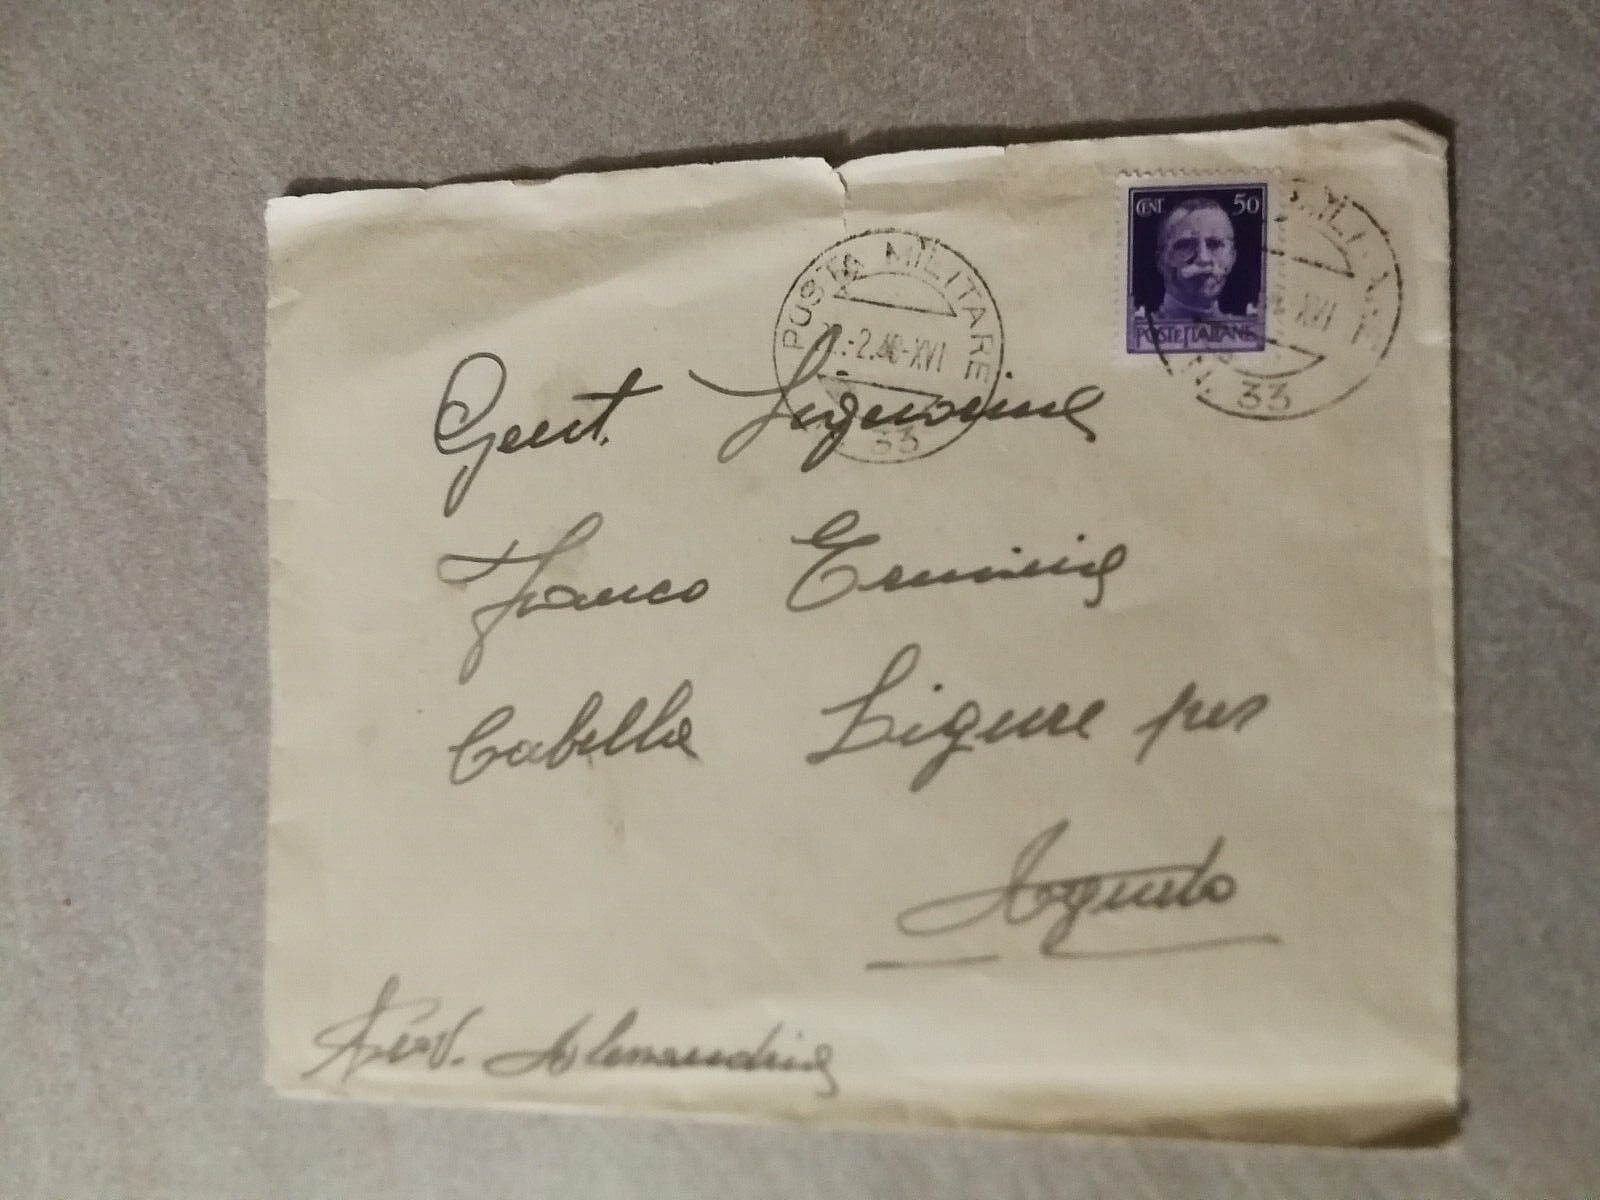 CENT 50
POSTE ITALIANE
POSTA MILITARE
-2.40-XVI
33
MILITARE
XVI
N. 33
Gent. Signorina
Franco Erminia
Cabella Ligure per
Prov. Alessandria